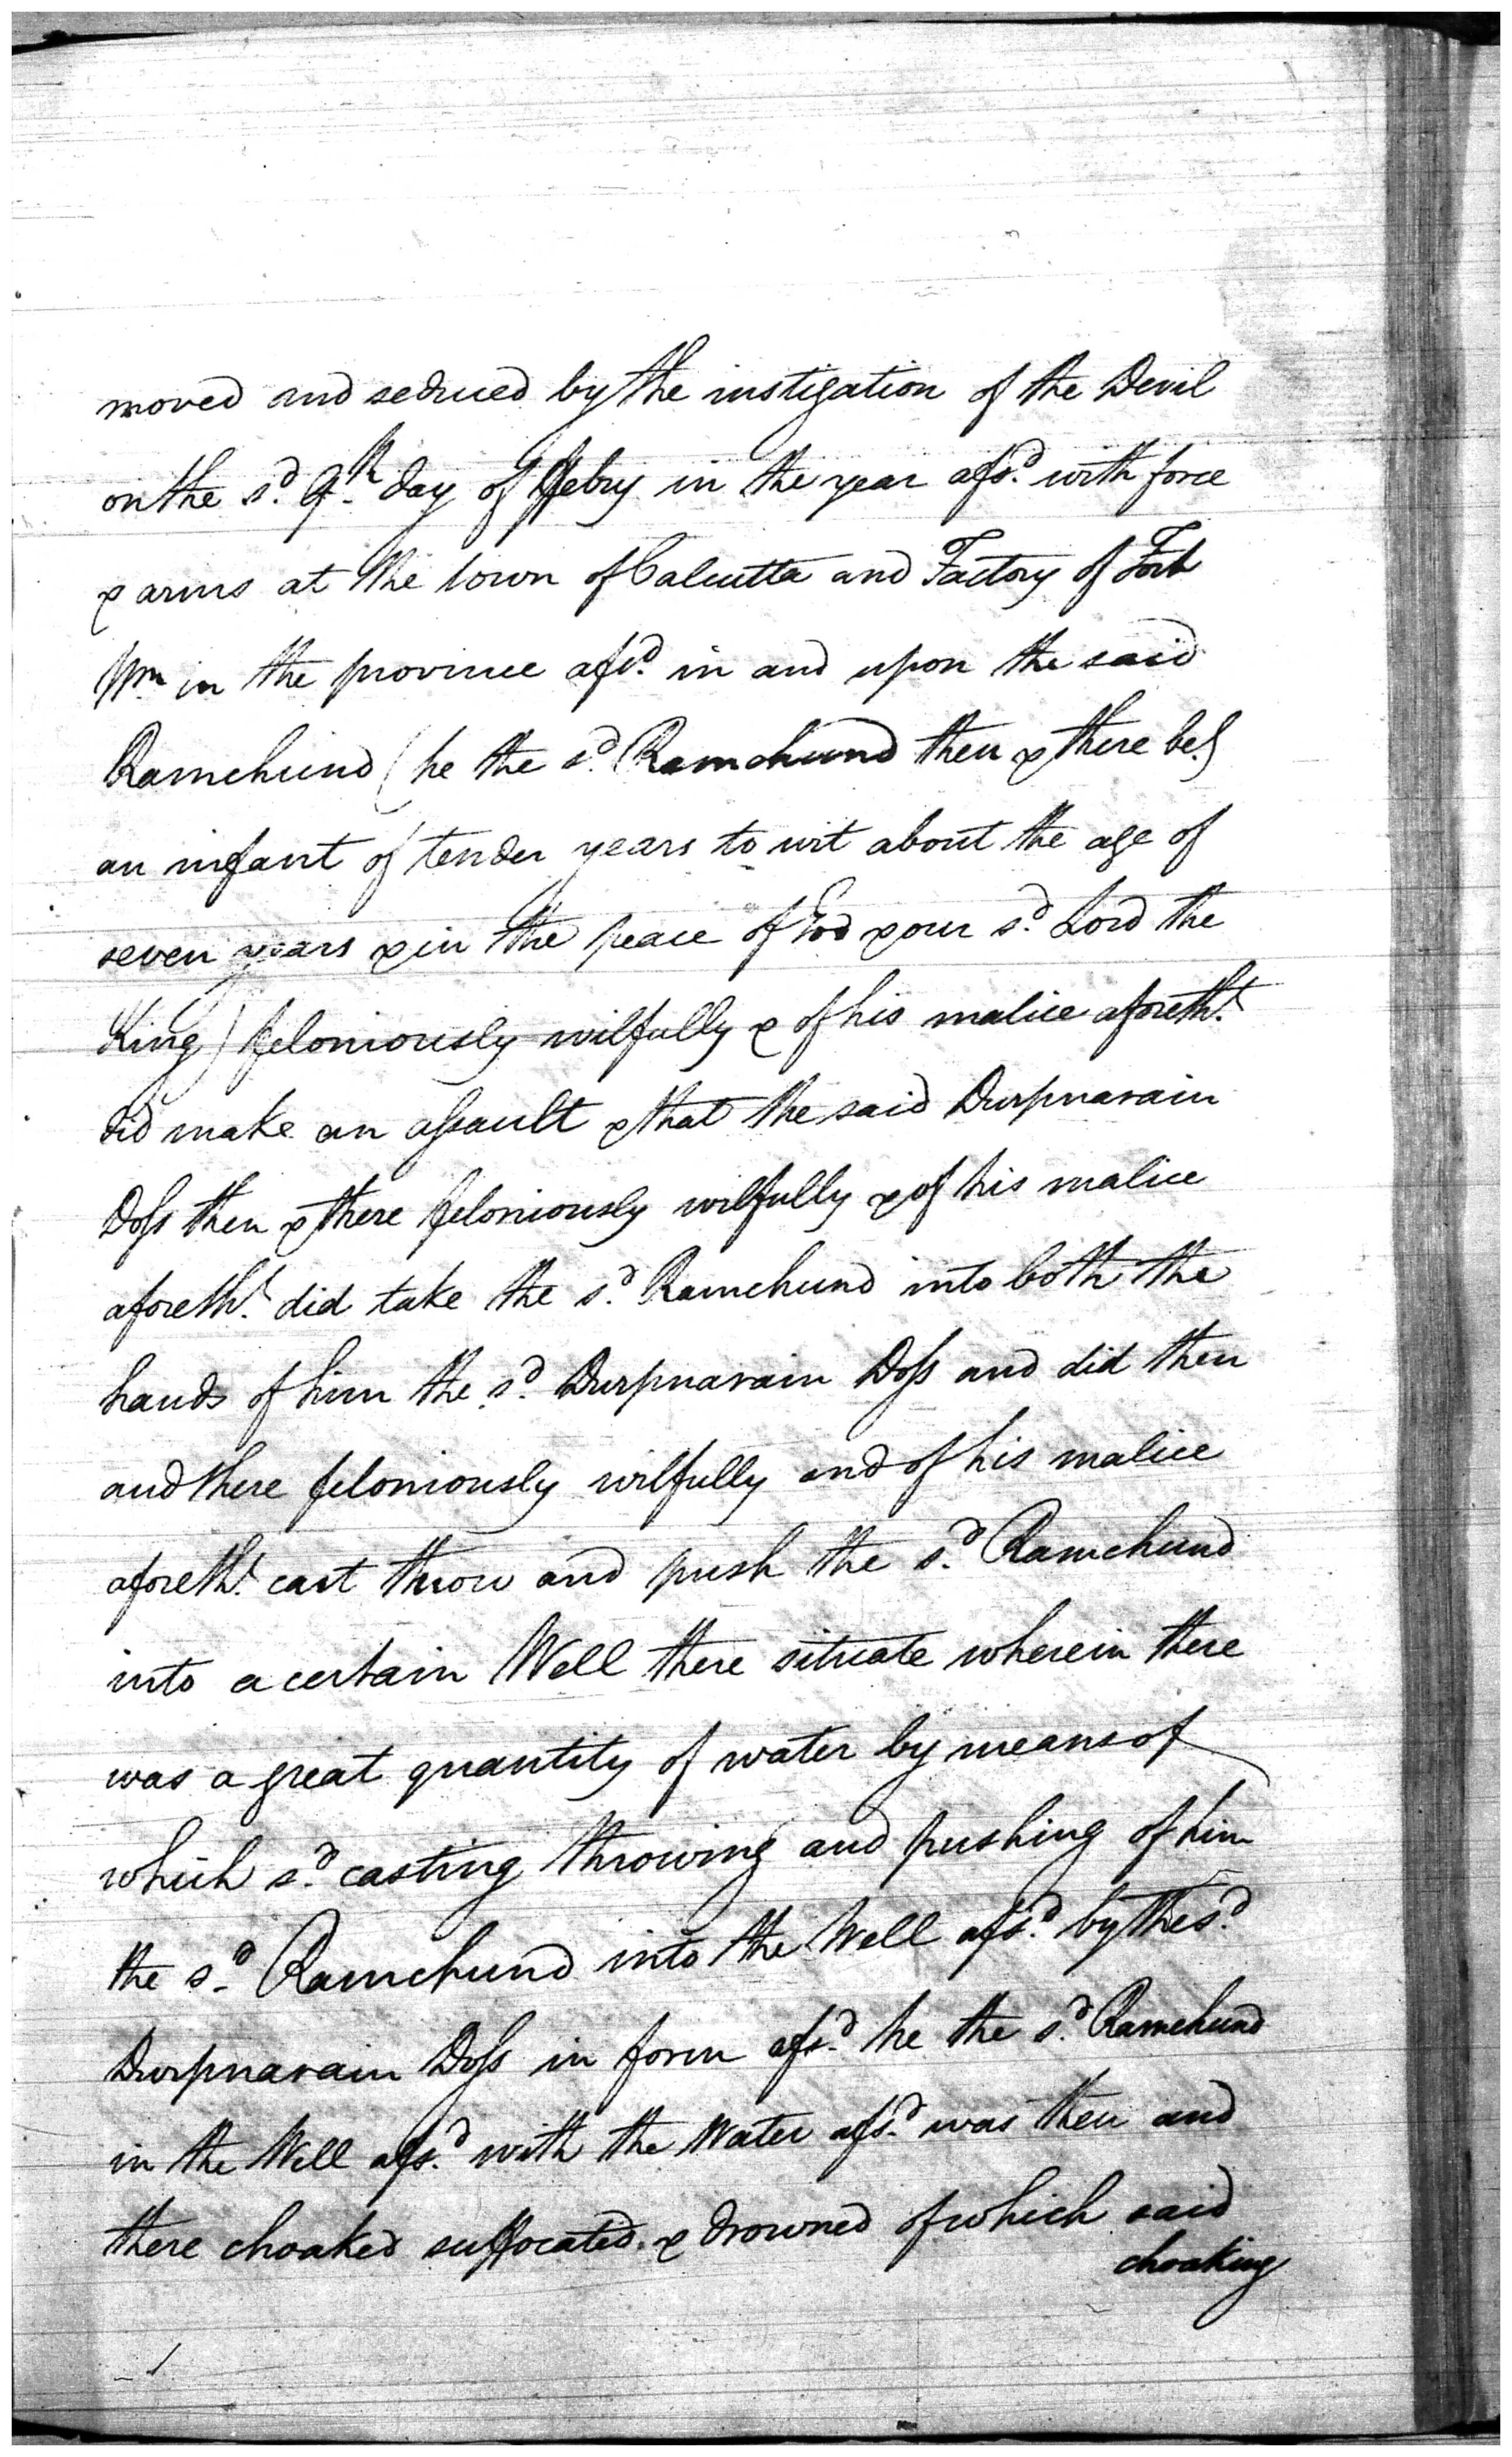 moved and seduced by the instigation of the Devil
on the sd. 9th day of ffebry in the year afsd. with force
& arms at the town of Calcutta and Factory of Fort
Wm in the province afsd. in and upon the said
Ramchund (he the sd. Ramchund then & there be.g
an infant of tender years to wit about the age of
seven years & in the peace of God & our sd. Lord the
King) feloniously wilfully & of his malice aforetht.
did make an assault & that the said Durpnarain
Doss then & there feloniously wilfully & of his malice
aforetht. did take the sd. Ramchund into both the
hands of him the sd. Durpnarain Doss and did then
and there feloniously wilfully and of his malice
aforetht. cast throw and push the sd. Ramchund
into a certain Well there situate wherein there
was a great quantity of water by means of
which sd. casting throwing and pushing of him
the sd. Ramchund into the Well afsd. by the sd.
Durpnarain Doss in form afsd. he the sd. Ramchund
in the Well afsd. with the Water afsd. was then and
there choaked suffocated & drowned of which said
choaking